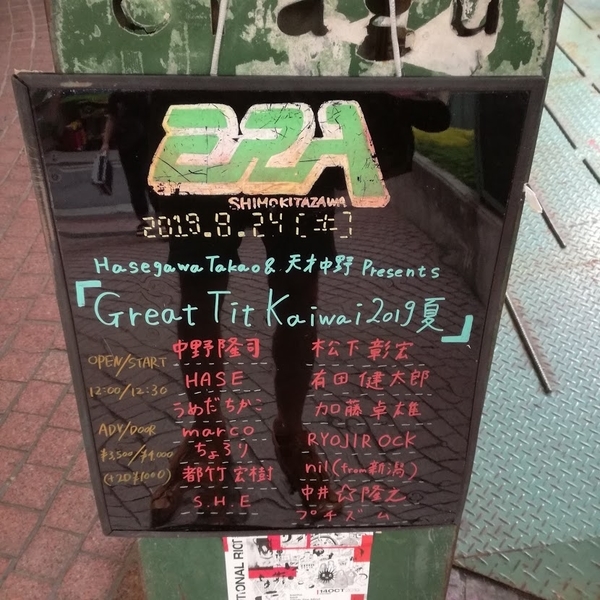 era
SHIMOKITAZAWA
2019.8.24[土]
Hasegawa Takao & 天才中野 Presents
「Great Tit Kaiwai 2019夏」
OPEN/START
12:00/12:30
ADV/DOOR
¥3,500/¥4,000
(+2D¥1000)
中野隆司
HASE
うめだちかこ
marco
ちょろり
都竹宏樹
S.H.E
松下彰宏
有田健太郎
加藤卓雄
RYOJIROCK
nil(from新潟)
中井☆隆之
プチズム
TIONAL RIOT
14OCT